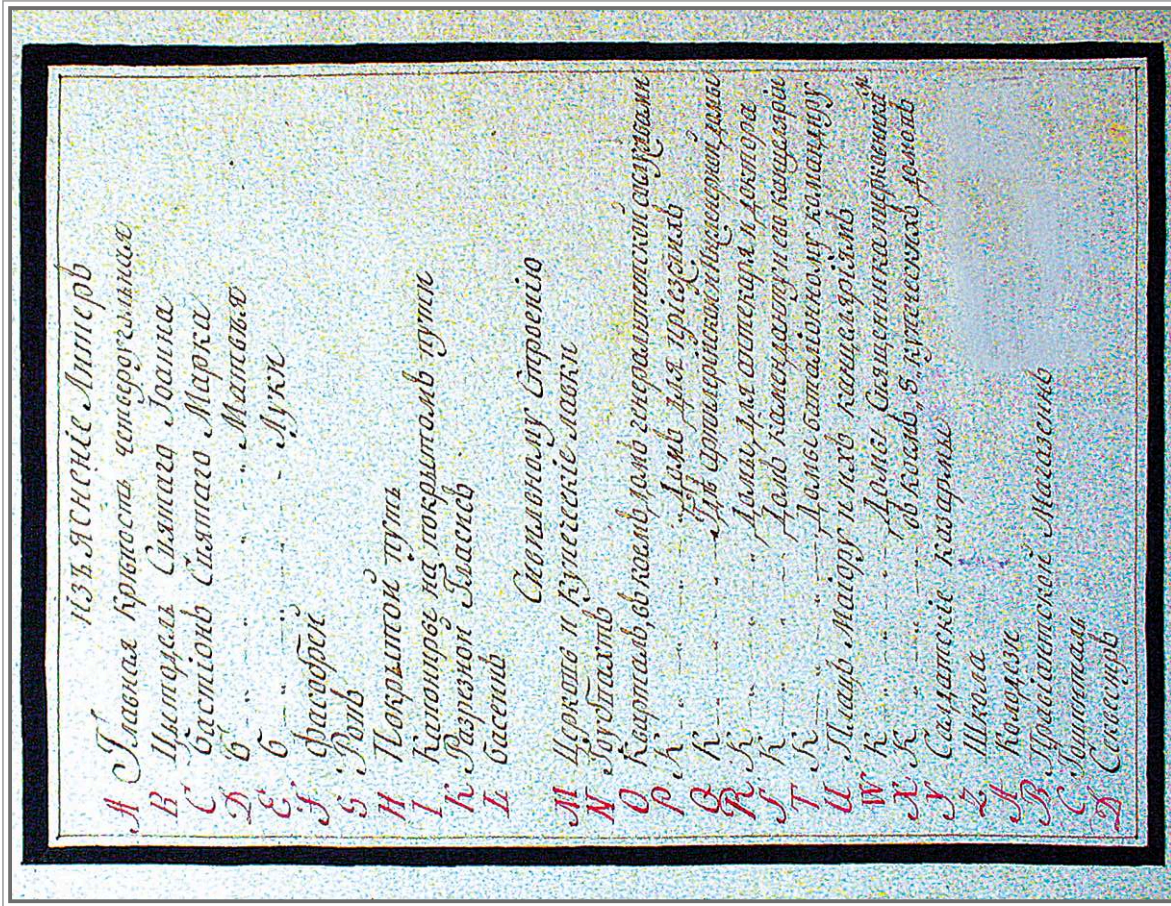 изъясненіе Литеръ
A Главная крѣпость четвероугольная
B Цытадель Святаго Іоанна
C бастіонъ Святаго Марка
D б - „ - „ - Матвѣя
E б - „ - „ - Луки
F фасобрей
G Ровъ
H Покрытой путь
I Капониры на покрытомъ пути
K Разрезной Гласисъ
L басеинъ
Сивильному Строенію
M Церковь и Купеческіе лавки
N Гоубтвахтъ
O Кварталъ, въ коемъ домъ генералитетской
P К - „ - „ - Домъ для пріезжихъ
Q К - „ - „ - артилерикой и Инженерной домы
R К - „ - „ - Домы для аптекаря и доктора
S К - „ - „ - Домъ каменданту и ево канцелярїи
T К - „ - „ - Домы баталіонному командиру
U Плацъ Маіору и ихъ канцеляріямъ
W К - „ - „ - Домы Священника
X К - „ - „ - въ коемъ „5„ купеческихъ домовъ
Y Салдатскіе казармы
Z Школа
A Колодезе
B Провіантской Магазеинъ
C Гошпиталь
D Секвестръ